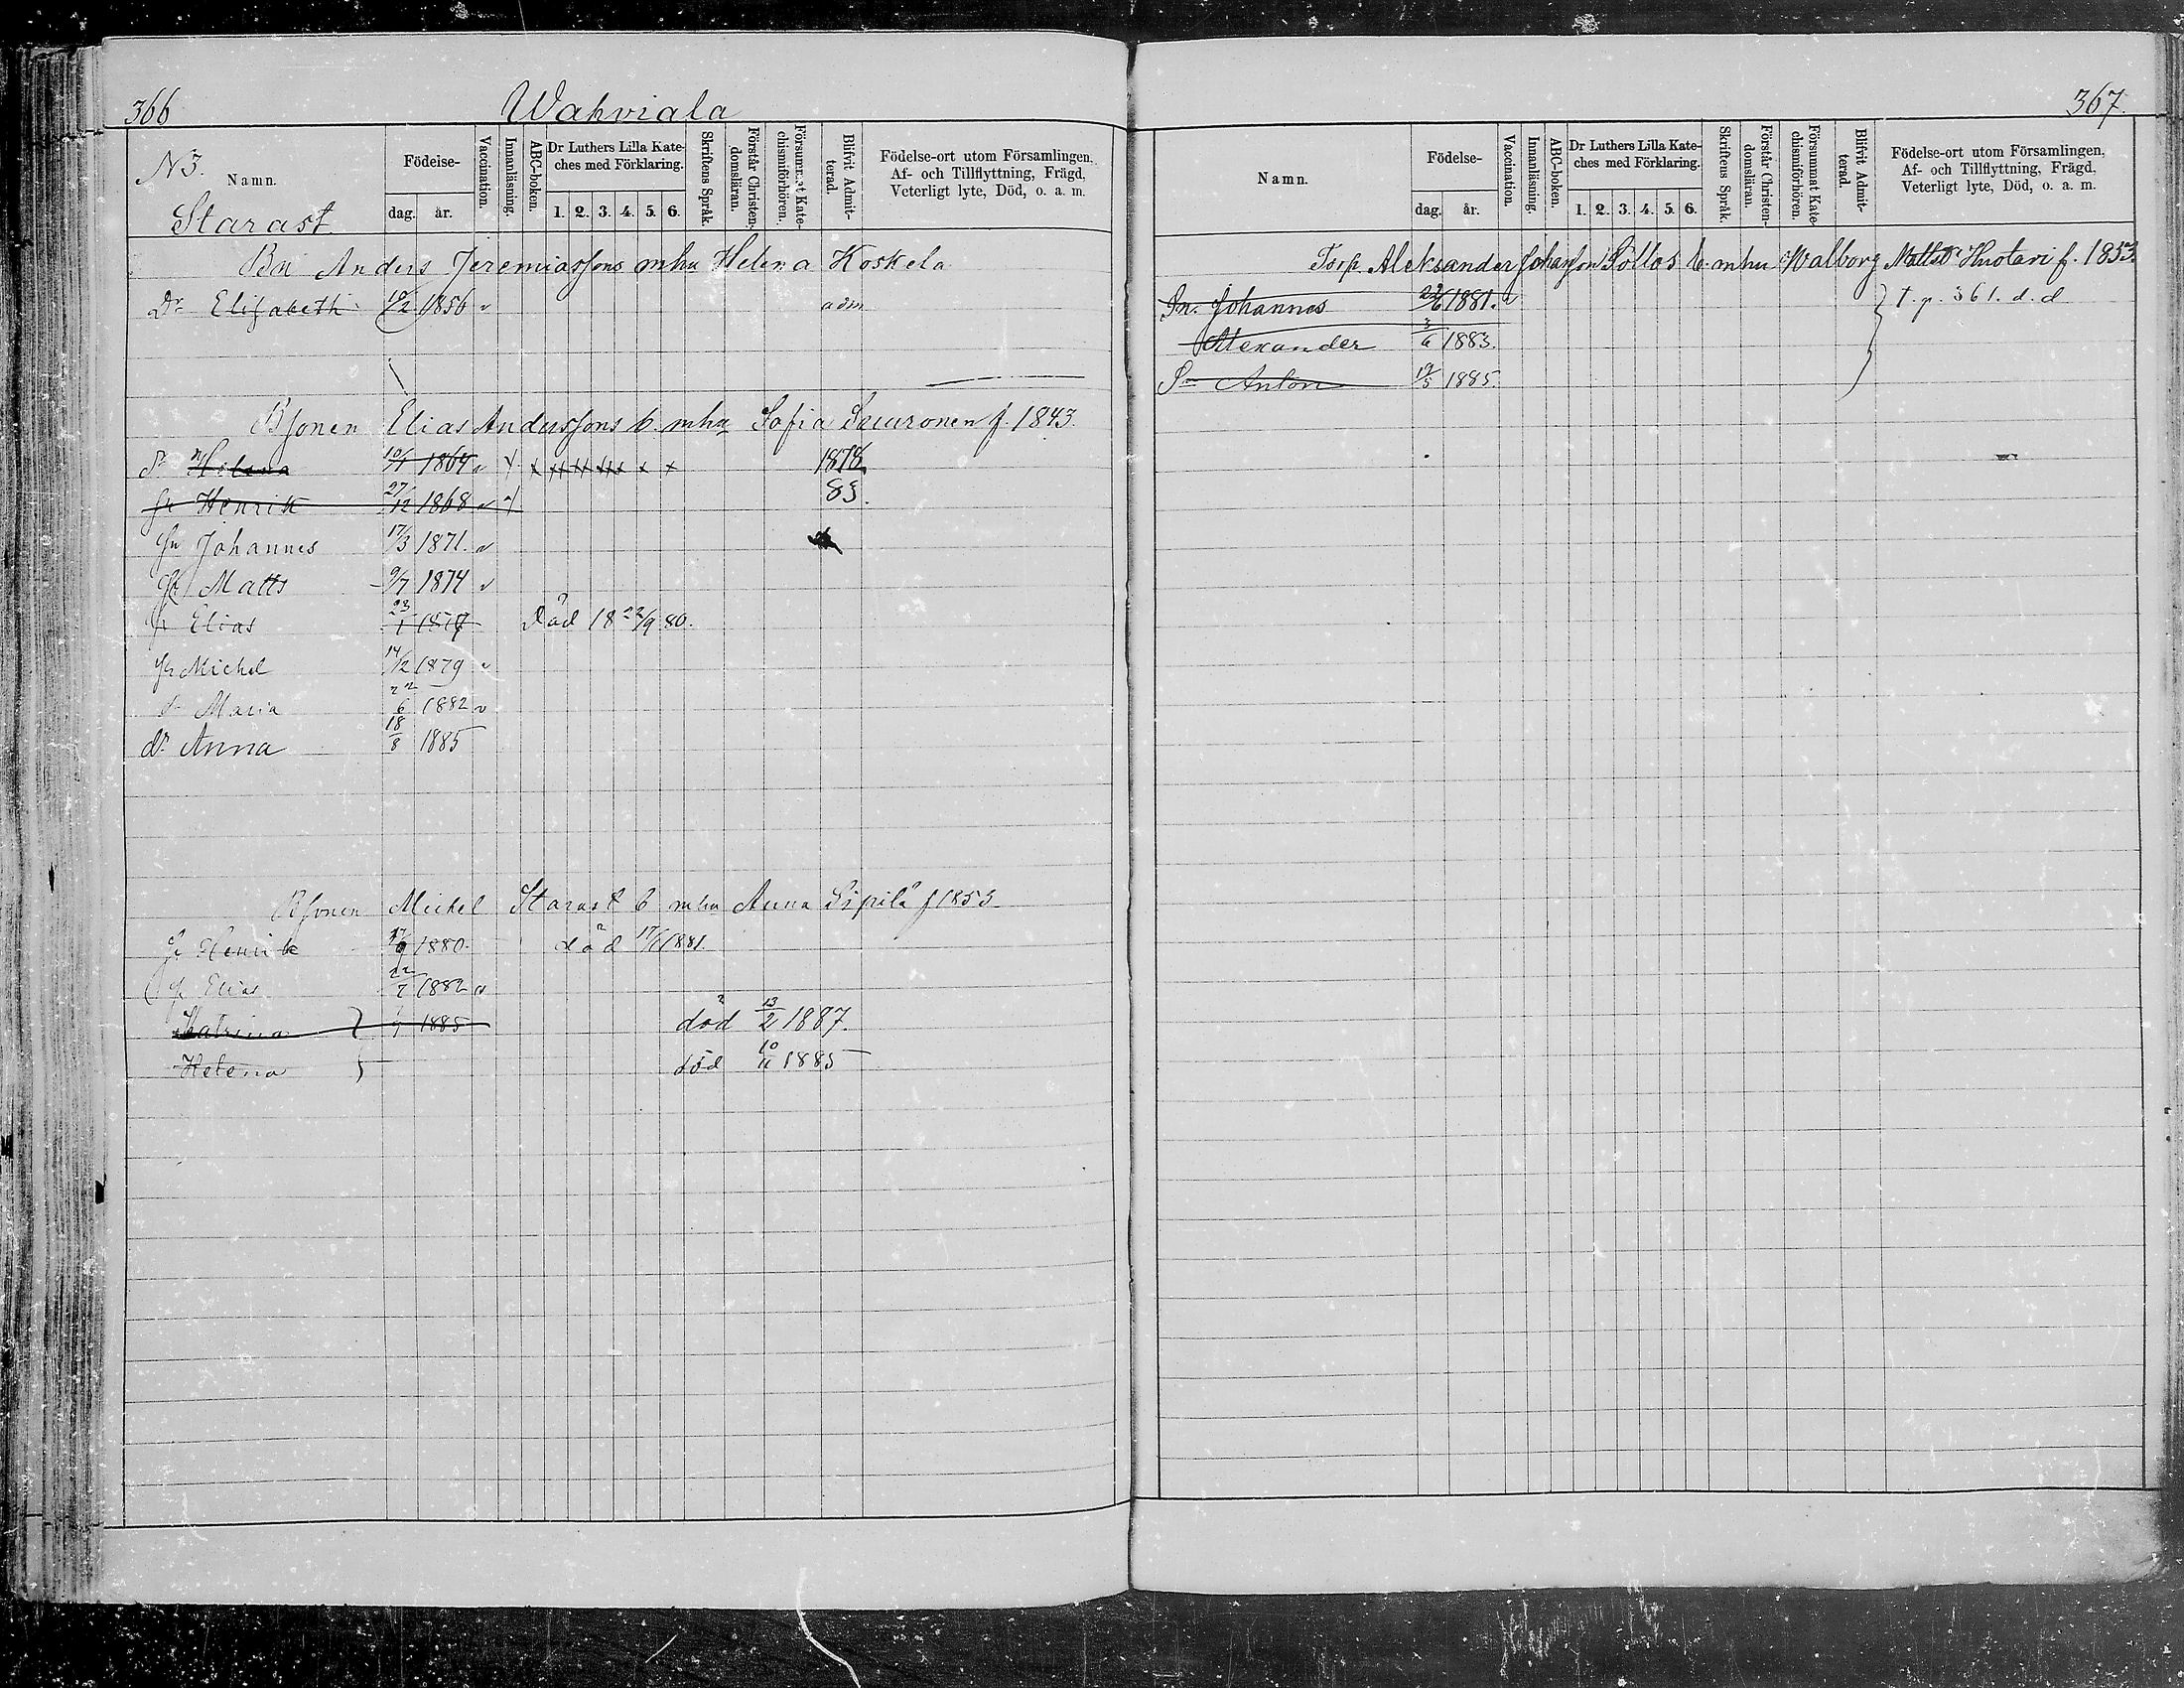 366
Wahviala
N3. Namn.
Starast
Födelse-
dag. år.
Vaccination.
Innanläsning.
ABC-boken.
Dr Luthers Lilla Kate-
ches med Förklaring.
1. 2. 3. 4. 5. 6.
Skriftens Språk.
Förstår Christen-
domsläran.
Försummat Kate-
chismiförhören.
Blifvit Admit-
terad.
Födelse-ort utom Församlingen,
Af- och Tillflyttning, Frägd,
Veterligt lyte, Död, o. a. m.
Bn Anders Jeremiassons mhu Helena Koskela
Dr Elisabeth 1856 v adm
Bsonen Elias Anderssons b. mhu Sofia f. 1843.
Helena 10/1 1864 v 1878
Henrik 27/12 1868 v 83.
Sn Johannes 17/3 1871. v
Matts 9/7 1874 v
Elias 23/1 död 18 22/9 80.
Michel 14/2 1879 v
Maria 22/6 1882 v
dr Anna 18/8 1885
Bsonen Michel Starast b mhu Anna Sipilä f 1853
Henrik 1880. död 1881.
Elias 1882 v
Katrina } 1885 död 13/2 1887.
Helena } död 10/11 1885
367.
Namn.
Födelse-
dag. år.
Vaccination.
Innanläsning.
ABC-boken.
Dr Luthers Lilla Kate-
ches med Förklaring.
1. 2. 3. 4. 5. 6.
Skriftens Språk.
Förstår Christen-
domsläran.
Försummat Kate-
chismiförhören.
Blifvit Admit-
terad.
Födelse-ort utom Församlingen,
Af- och Tillflyttning, Frägd,
Veterligt lyte, Död, o. a. m.
Torp. Aleksander Johansson Sollos b. mhu Walborg Mattsdr Huotari f. 1853.
Sn. Johannes 1881. v } t. p. 361. d. d
Alexander 3/6 1883.
Sn Anton 19/5 1885